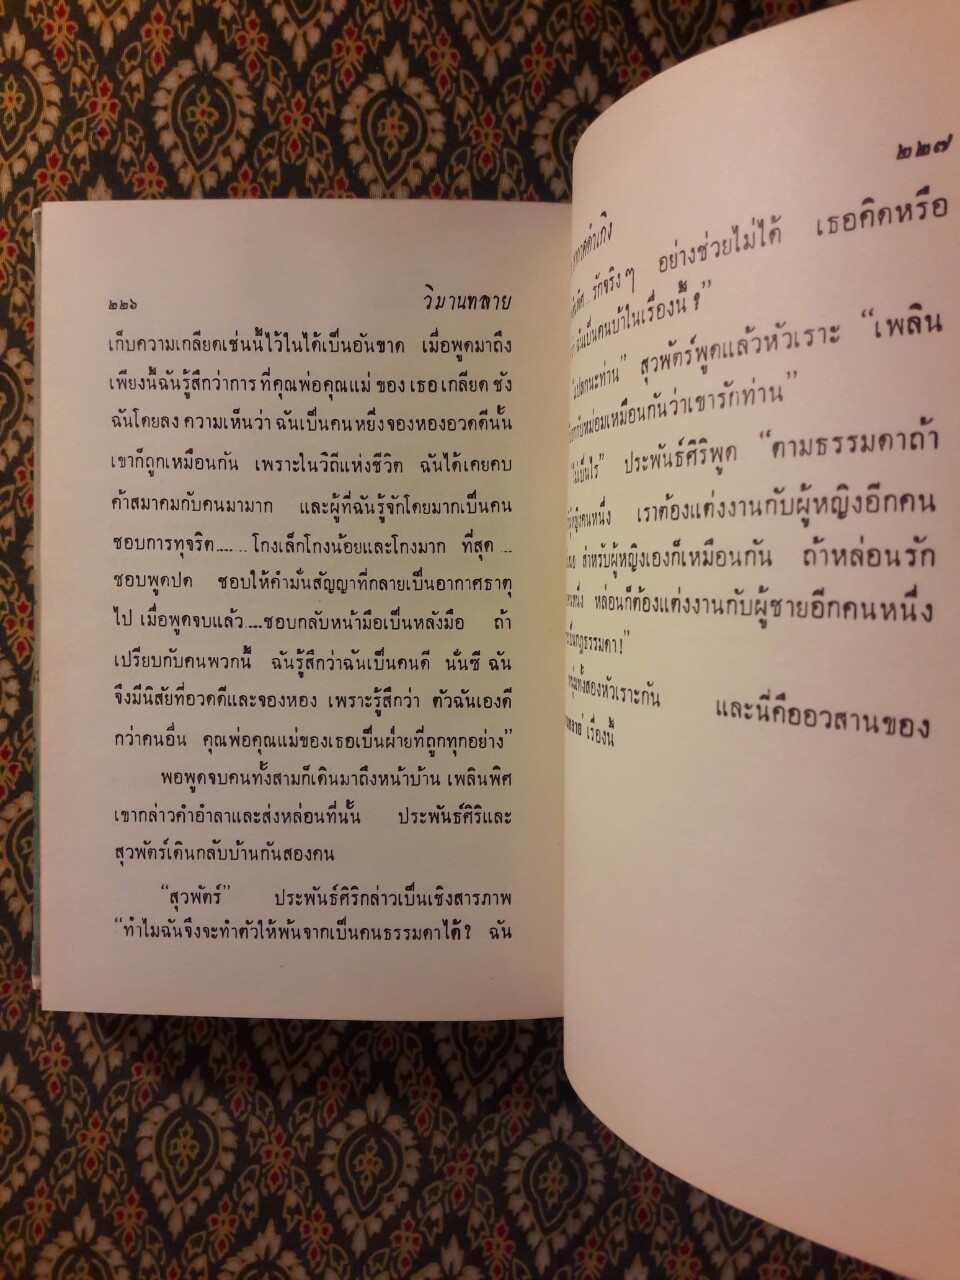 ๒๒๖ วิมานทลาย
เก็บความเกลียดเช่นนี้ไว้ในได้เป็นอันขาด เมื่อพูดมาถึง
เพียงนี้ฉันรู้สึกว่าการ ที่คุณพ่อคุณแม่ ของ เธอ เกลียด ชัง
ฉันโดยลง ความเห็นว่า ฉันเป็นคน หยิ่งจองหองอวดดีนั้น
เขาก็ถูกเหมือนกัน เพราะในวิถีแห่งชีวิต ฉันได้เคยคบ
ค้าสมาคมกับคนมามาก และผู้ที่ฉันรู้จักโดยมากเป็นคน
ชอบการทุจริต....... โกงเล็กโกงน้อยและโกงมาก ที่สุด ...
ชอบพูดปด ชอบให้คำมั่นสัญญาที่กลายเป็นอากาศธาตุ
ไป เมื่อพูดจบแล้ว ....ชอบกลับหน้ามือเป็นหลังมือ ถ้า
เปรียบกับคนพวกนี้ ฉันรู้สึกว่าฉันเป็นคนดี นั่นซี ฉัน
จึงมีนิสัยที่อวดดีและจองหอง เพราะรู้สึกว่า ตัวฉันเองดี
กว่าคนอื่น คุณพ่อคุณแม่ของเธอเป็นฝ่ายที่ถูกทุกอย่าง”
พอพูดจบคนทั้งสามก็เดินมาถึงหน้าบ้าน เพลินพิศ
เขากล่าวคำอำลาและส่งหล่อนที่นั้น ประพันธ์ศิริและ
สุวพัตร์เดินกลับบ้านกันสองคน
“สุวพัตร์” ประพันธ์ศิริกล่าวเป็นเชิงสารภาพ
“ทำไมฉันจึงจะทำตัวให้พ้นจากเป็นคนธรรมดาได้? ฉัน
๒๒๗
รักจริง ๆ อย่างช่วยไม่ได้ เธอคิดหรือ
ฉันเป็นคนบ้าในเรื่องนี้ ?”
สุวพัตร์พูดแล้วหัวเราะ “เพลิน
เหมือนกันว่าเขารักท่าน”
“ไม่เป็นไร” ประพันธ์ศิริพูด “ตามธรรมดาถ้า
คนหนึ่ง เราต้องแต่งงานกับผู้หญิงอีกคน
สำหรับผู้หญิงเองก็เหมือนกัน ถ้าหล่อนรัก
หล่อนก็ต้องแต่งงานกับผู้ชายอีกคนหนึ่ง
เป็นกฎธรรมดา!”
ทั้งสองหัวเราะกัน และนี่คืออวสานของ
เรื่องนี้